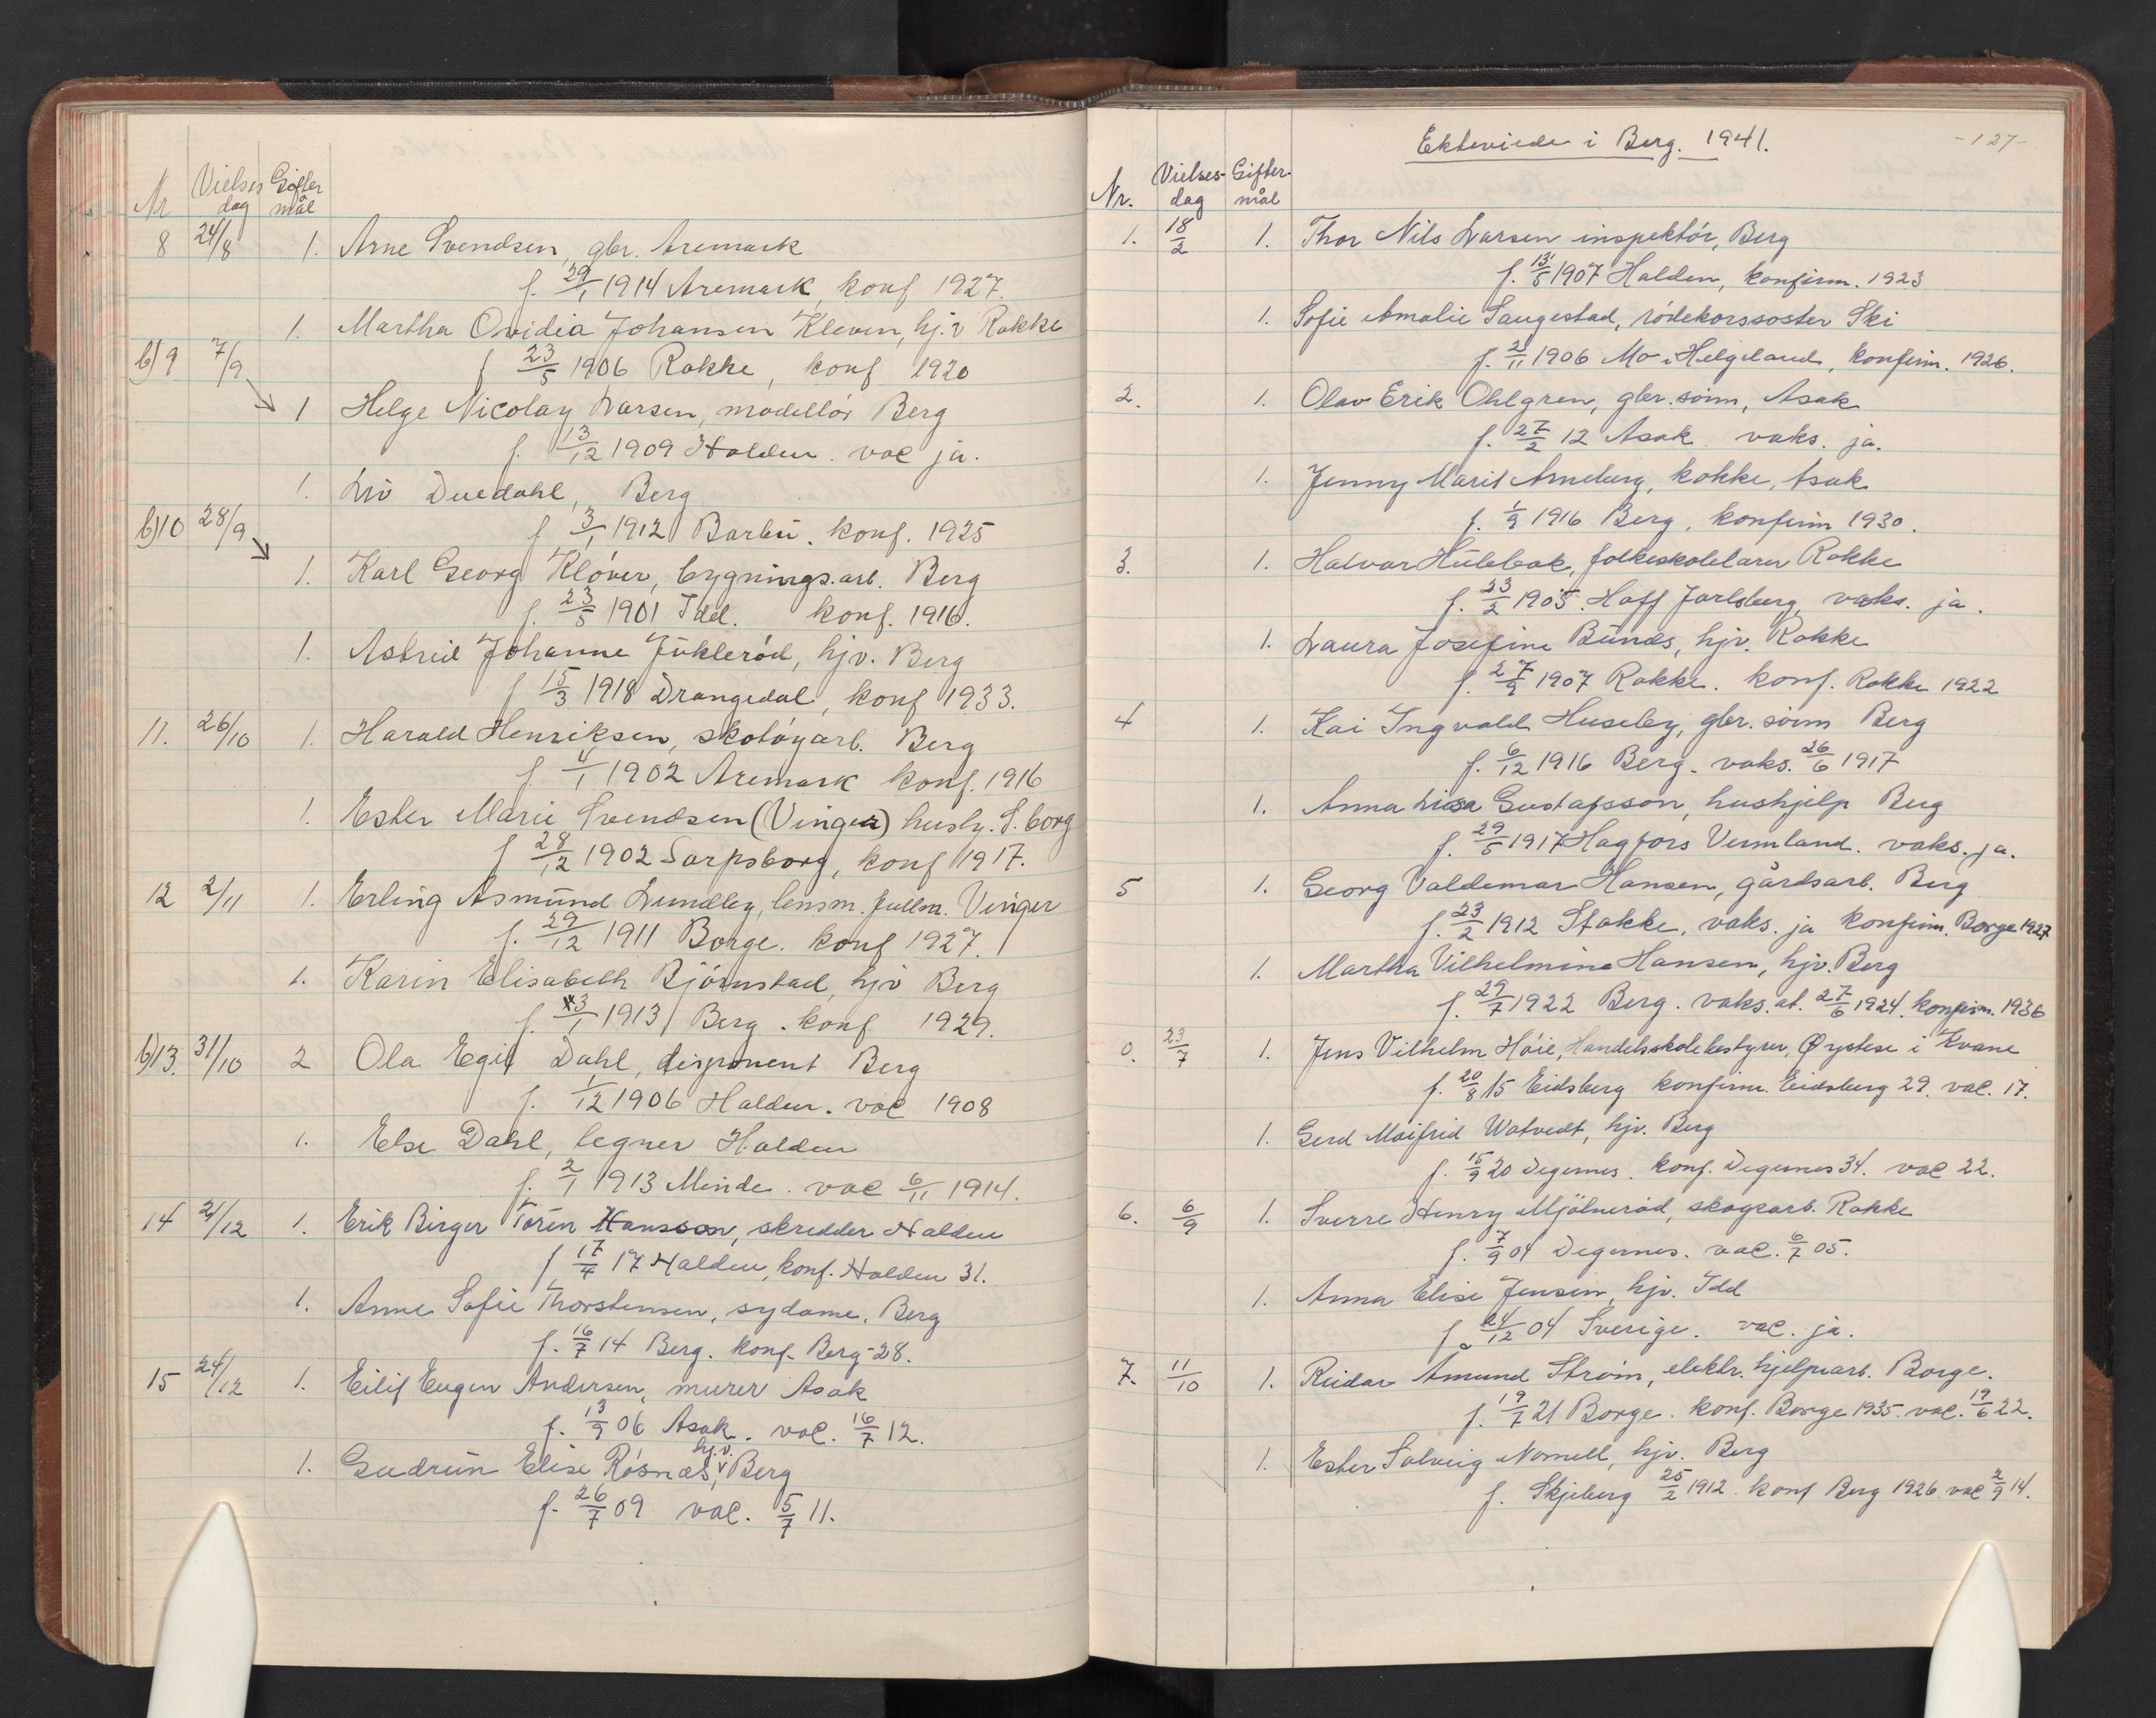 Nr Vielses dag Gifter mål
8 24/8 1. Arne Svendsen, gbr. Aremark
f. 29/1 1914 Aremark, konf 1927.
1. Martha Ovidia Johansen Kleven, hj.v Rokke
b) 9 7/9 f 23/5 1906 Rokke, konf 1920
1 Helge Nicolay Larsen, modellør Berg
f. 13/12 1909 Halden. vac ja.
1. Liv Duedahl, Berg
b) 10 28/9 f 3/1 1912 Barbu. konf. 1925
1. Karl Georg Kløver, bygnings.arb. Berg
f. 23/5 1901 Idd. konf. 1916.
1. Astrid Johanne Juklerød, hjv. Berg
f 15/3 1918 Drangedal, konf 1933.
11. 26/10 1. Harald Henriksen, skotøyarb. Berg
f. 4/1 1902 Aremark konf. 1916
1. Ester Marie Svendsen (Vinger) husby. S.borg
f 28/12 1902 Sarpsborg, konf 1917.
12 2/11 1. Erling Asmund Lundby, lensm. fullm. Vinger
f. 29/12 1911 Borge. konf 1927.
1. Karin Elisabeth Bjørnstad, hjv Berg
f. 3/1 1913 Berg. konf 1929.
b) 13. 31/10 2 Ola Egil Dahl, disponent Berg
f. 1/12 1906 Halden. vac 1908
1. Else Dahl, tegner Halden
f. 2/1 1913 Minde. vac 6/11 1914.
14 21/12 1. Erik Birger Torén Hansson, skredder Halden
f 17/4 17 Halden, konf. Halden 31.
1. Anne Sofie Thorstensen, sydame. Berg
f. 16/7 14 Berg. konf. Berg-28.
15 24/12 1. Eilif Eugen Andersen, murer Asak
f. 13/9 06 Asak. vac. 16/7 12.
hj.v.
1. Gudrun Elise Røsnæs, Berg
f. 26/7 09 vac. 5/7 11.
Ekteviede i Berg. 1941. -127-
Nr. Vielses-dag Gifter-mål
1. 18/2 1. Thor Nils Larsen inspektør, Berg
f. 13/5 1907 Halden, konfirm. 1923
1. Sofie Amalie Saugestad, rödekorssøster Ski
f. 2/11 1906 Mo i Helgeland, konfirm. 1926.
2. 1. Olav Erik Ohlgren, gbr. sønn, Asak
f. 27/2 12 Asak. vaks. ja.
1. Jenny Marit Arneberg, kokke, Asak
f. 1/9 1916 Berg, konfirm 1930.
3. 1. Halvar Hullebak, folkeskolelærer Rokke
f. 23/2 1905. Hoff Jarlsberg, vaks. ja.
1. Laura Josefine Bunæs, hjv. Rokke
f. 27/9 1907 Rokke. konf. Rokke 1922
4 1. Kai Ingvald Huseby, gbr. sønn Berg
f. 6/12 1916 Berg. vaks. 26/6 1917
1. Anna Lisa Gustafsson, hushjelp Berg
f. 29/5 1917 Hagfors Vermland. vaks. ja.
5 1. Georg Valdemar Hansen, gårdsarb. Berg
f. 23/2 1912 Stokke, vaks. ja konfirm. Borge 1927
1. Martha Vilhelmine Hansen, hjv. Berg
f. 29/7 1922 Berg. vaks. at. 27/6 1924. konfirm. 1936
0. 23/7 1. Jens Vilhelm Høie, Handelsskolebestyrer, Øystese i Kvam
f. 20/8 15 Eidsberg konfirm. Eidsberg 29. vac. 17.
1. Gerd Maifrid Watvedt, hjv. Berg
f. 15/9 20 Degernes. konf. Degernes 34. vac 22.
6. 6/9 1. Sverre Henry Mjølnerød, skogsarb. Rokke
f. 7/9 04 Degernes. vac. 6/7 05.
1. Anna Elise Jensen, hjv. Idd
f. 24/12 04 Sverige. vac. ja.
7. 11/10 1. Reidar Åmund Strøm, elektr. hjelpearb. Borge.
f. 19/7 21 Borge. konf. Borge 1935. vac. 19/6 22.
1. Ester Solveig Nomell, hjv. Berg
f. Skjeberg 25/2 1912 konf Berg 1926. vac 2/9 14.